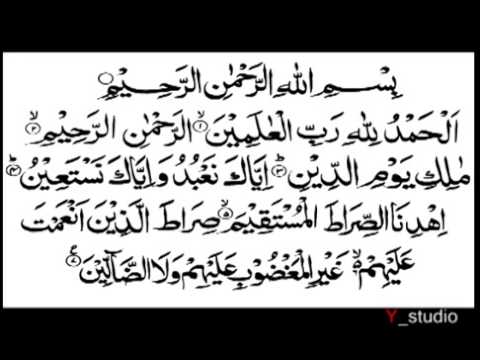 بِسْمِ اللهِ الرَّحْمٰنِ الرَّحِيْمِ
اَلْحَمْدُ لِلّٰهِ رَبِّ الْعٰلَمِيْنَ ۙ﴿۱﴾ الرَّحْمٰنِ الرَّحِيْمِ ۙ﴿۲﴾
مٰلِكِ يَوْمِ الدِّيْنِ ؕ﴿۳﴾ اِيَّاكَ نَعْبُدُ وَ اِيَّاكَ نَسْتَعِيْنُ ؕ﴿۴﴾
اِهْدِنَا الصِّرَاطَ الْمُسْتَقِيْمَ ۙ﴿۵﴾ صِرَاطَ الَّذِيْنَ اَنْعَمْتَ
عَلَيْهِمْ ۙ﴿۶﴾ غَيْرِ الْمَغْضُوْبِ عَلَيْهِمْ وَلَا الضَّآلِّيْنَ ﴿۷﴾
Y_studio